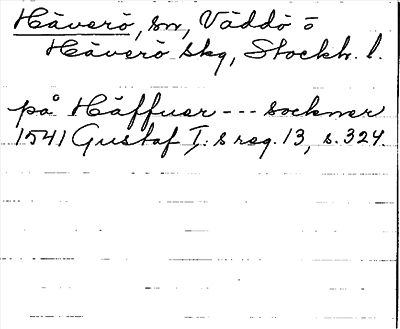 Häverö, sn, Väddö o
Häverö skg, Stockh. l.
på Häffuer --- sockner
1541 Gustaf I:s reg. 13, s. 324.